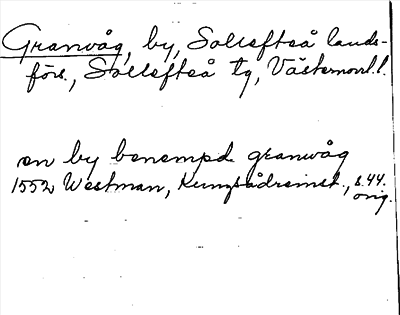 Granvåg, by, Sollefteå lands-
förs., Sollefteå tg, Västernorrl.l.
en by benempd granvåg
1552 Westman, Kungsådreinst., s.44.
orig.